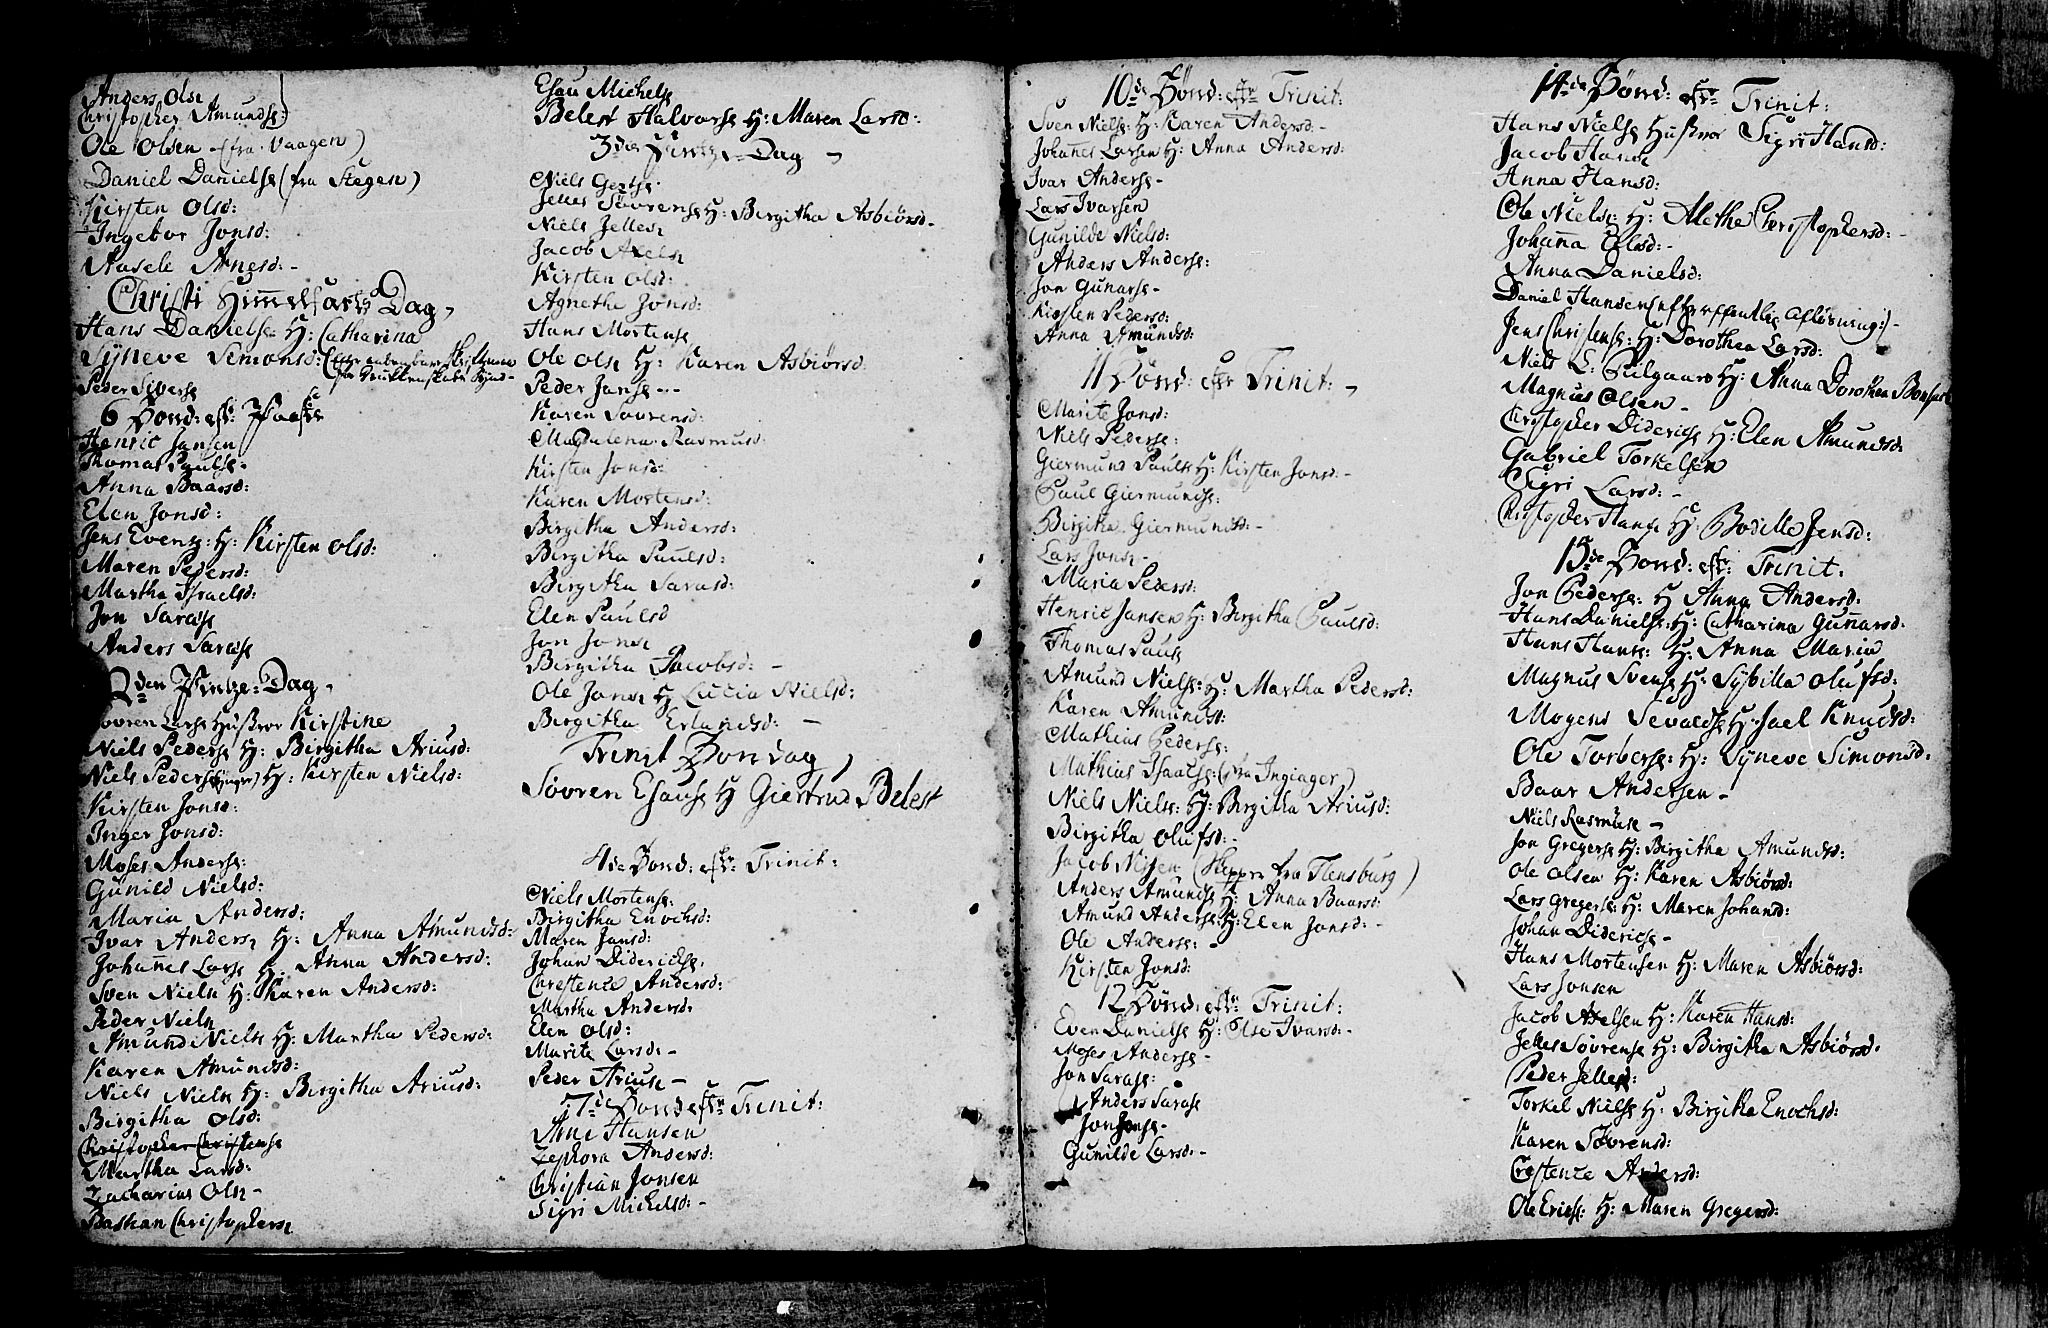 Anders Olse
Christopher Amundse:
Ole Olsen - (fra Vaagen)
Daniel Danielse (fra Stegen)
Kirsten Olsd:
Ingebor Jonsd:
Aasele Arnesd: -
Christi Himmelfarts Dag,
Hans Danielse: H: Catharina
Syneve Simonsd: (
Peder Siverse
6 Sønd: eftr: Paaske
Henric Jansen
Thomas Paulse -
Anna Baarsd:
Elen Jonsd:
Jens Evense: H: Kirsten Olsd:
Maren Pedersd:
Martha Israelsd:
Jon Sarase
Anders Sarase
2den Pintze-Dag,
Søvren Larse Hustroe Kirstine
Niels Pederse H: Birgitha Ariusd:
Niels Pederse (ynger) H: Kirsten Nielsd:
Kirsten Jonsd:
Inger Jonsd:
Moses Anderse:
Gunild Nielsd:
Maria Andersd:
Ivar Anderse H: Anna Amundsd:
Johannes Larse H: Anna Andersd:
Sven Nielse H: Karen Andersd:
Peder Nielse
Amund Nielse H: Martha Pedersd:
Karen Amundsd:
Niels Nielse H: Birgitha Ariusd:
Birgitha Olsd:
Christopher Christense
Martha Larsd:
Zacharias Olse -
Bastian Christopherse
Esau Michelse
Belest Halvorse H: Maren Larsd:
3die Pintze-Dag,
Niels Gertse
Jelles Søvrense H: Birgitha Asbiørsd. -
Niels Jellese
Jacob Axelse
Kirsten Olsd:
Agnethe Jonsd:
Hans Mortense
Ole Olse H: Karen Asbiørsd:
Peder Janse - -
Karen Søvrensd:
Magdalena Rasmusd:
Kirsten Jonsd:
Karen Mortensd:
Birgitha Andersd:
Birgitha Paulsd:
Birgitha Sarasd:
Elen Paulsd
Jon Jonse
Birgitha Jacobsd: -
Ole Janse H Lucia Nielsd:
Birgitha Erlandsd: -
Trinit Søndag,
Søvren Esause H Giertrud Belest
4de Sønd: eftr: Trinit:
Niels Mortense:
Birgitha Enochsd:
Maren Jansd:
Johan Diderichse,
Chrestence Andersd:
Martha Andersd:
Elen Olsd:
Marite Larsd: -
Peder Ariuse -
7de Sønd eftr Trinit:
Arne Hansen
Zephora Andersd:
Christian Jonsen
Sigri Michelsd: -
10de Sønd: eftr Trinit:
Sven Nielse: H: Karen Andersd: -
Johannes Larsen H: Anna Andersd:
Ivar Anderse -
Lars Ivarsen
Gunilde Nielsd:
Anders Anderse:
Jon Gunarse -
Kirsten Pedersd:
Anna Amundsd:
11 Sønd: eftr Trinit:,
Marite Jonsd:
Niels Pederse:
Giermund Paulse H: Kirsten Jonsd: -
Paul Giermundse:
Birgitha Giermundsd: -
Lars Jonse -
Maria Pedersd:
Henric Jansen H: Birgitha Paulsd:
Thomas Paulse
Amund Nielse: H: Martha Pedersd:
Karen Amundsd:
Mathias Pederse:
Mathias Isaacse: (fra Ingiager)
Niels Nielse: H: Birgitha Ariusd:
Birgitha Olufsd: -
Jacob Nissen (Skipper fra Flensburg)
Anders Amundse H: Anna Baarsd:
Amund Anderse: H: Elen Jonsd: -
Ole Anderse: -
Kirsten Jonsd:
12 Sønd: eftr Trinit:
Even Danielse H: Olse Ivarsd: -
Moses Anderse -
Jon Sarase:
Anders Sarase
Jon Jonse -
Gunilde Larsd: -
14de Sønd: eftr Trinit:
Hans Nielse Hustroe Sigri Hansd:
Jacob Hanse
Anna Hansd:
Ole Nielse: H: Alethe Christophersd: -
Johanna Olsd: -
Anna Danielsd:
Daniel Hansen (efter offentlig Afløsning) -
Jens Christense: H: Dorothea Larsd:
Niels L: H: Anna Dorothea
Magnus Olsen -
Christopher Diderichse H: Elen Amundsd:
Gabriel Torkelsen
Sigri Larsd: -
Christopher Hanse H: Bodille Jensd:
15de Sønd: eftr: Trinit:
Jon Pederse: H Anna Andersd:
Hans Danielse: H: Catharina Gunarsd:
Hans Hanse: H: Anna Maria
Magnus Svense H: Sybilla Olufsd:
Mogens Sevaldse H: Jael Knudsd:
Ole Torberse: H: Syneve Simonsd.
Baar Andersen -
Niels Rasmuse -
Jon Gregerse H: Birgitha Amundsd:
Ole Olsen H: Karen Asbiørsd:
Lars Gregerse: H: Maren Johansd:
Johan Diderichse -
Hans Mortensen H: Maren Asbiørsd:
Lars Jonsen
Jacob Axelsen H: Karen Hansd:
Jelles Søvrense H: Birgitha Asbiørsd.
Peder Jellesd:
Torkel Nielse H: Birgitha Enochsd:
Karen Søvrensd:
Crestence Andersd:
Ole Ericse: H: Maren Gregersd: